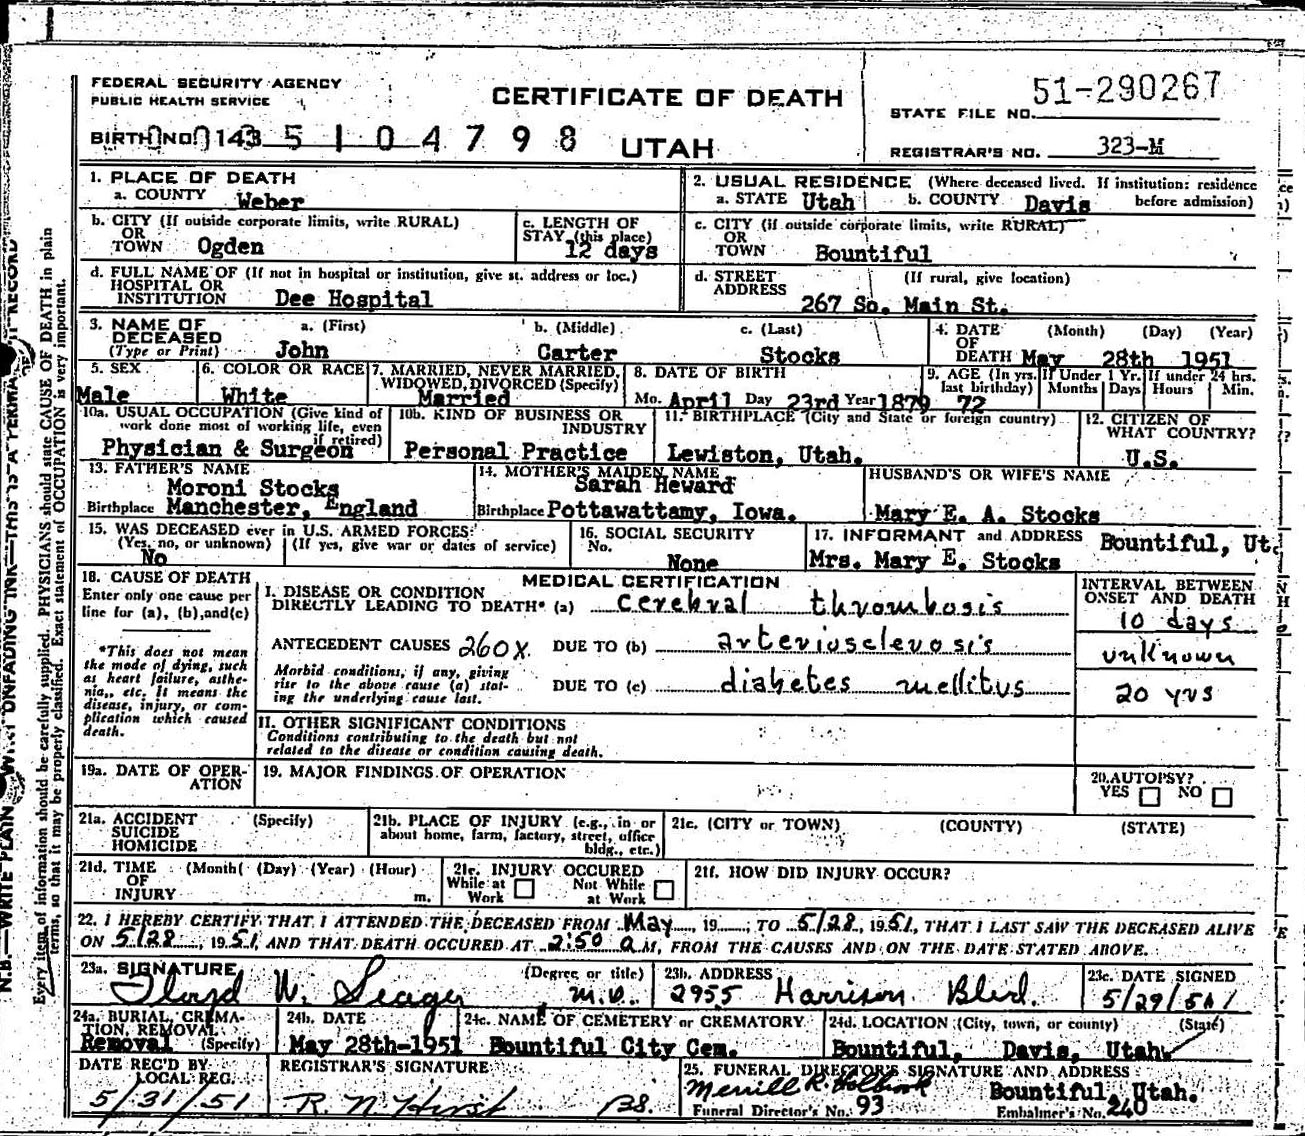 FEDERAL SECURITY AGENCY
PUBLIC HEALTH SERVICE
CERTIFICATE OF DEATH
UTAH
STATE FILE NO. 51-290267
BIRTH NO. 143 5 1 0 4 7 9 8
REGISTRAR'S NO. 323-M
1. PLACE OF DEATH
a. COUNTY Weber
2. USUAL RESIDENCE (Where deceased lived. If institution: residence before admission)
a. STATE Utah b. COUNTY Davis
b. CITY (If outside corporate limits, write RURAL)
OR
TOWN Ogden
c. LENGTH OF
STAY (this place)
12 days
c. CITY (if outside corporate limits, write RURAL)
OR
TOWN Bountiful
d. FULL NAME OF (If not in hospital or institution, give st. address or loc.)
HOSPITAL OR
INSTITUTION Dee Hospital
d. STREET (If rural, give location)
ADDRESS
267 So. Main St.
3. NAME OF a. (First) b. (Middle) c. (Last)
DECEASED
(Type or Print) John Carter Stocks
4. DATE (Month) (Day) (Year)
OF
DEATH May 28th 1951
5. SEX
Male
6. COLOR OR RACE
White
7. MARRIED, NEVER MARRIED,
WIDOWED, DIVORCED (Specify)
Married
8. DATE OF BIRTH
Mo. April Day 23rd Year 1879
9. AGE (In yrs. last birthday)
72
If Under 1 Yr. Months Days
If under 24 hrs. Hours Min.
10a. USUAL OCCUPATION (Give kind of
work done most of working life, even
if retired)
Physician & Surgeon
10b. KIND OF BUSINESS OR
INDUSTRY
Personal Practice
11. BIRTHPLACE (City and State or foreign country)
Lewiston, Utah.
12. CITIZEN OF
WHAT COUNTRY?
U.S.
13. FATHER'S NAME
Moroni Stocks
Birthplace Manchester, England
14. MOTHER'S MAIDEN NAME
Sarah Heward
Birthplace Pottawattamy, Iowa.
HUSBAND'S OR WIFE'S NAME
Mary E. A. Stocks
15. WAS DECEASED ever in U.S. ARMED FORCES?
(Yes, no, or unknown) (If yes, give war or dates of service)
No
16. SOCIAL SECURITY
No.
None
17. INFORMANT and ADDRESS Bountiful, Ut.
Mrs. Mary E. Stocks
18. CAUSE OF DEATH
Enter only one cause per
line for (a), (b), and (c)
*This does not mean
the mode of dying, such
as heart failure, asthe-
nia, etc. It means the
disease, injury, or com-
plication which caused
death.
MEDICAL CERTIFICATION
INTERVAL BETWEEN
ONSET AND DEATH
I. DISEASE OR CONDITION
DIRECTLY LEADING TO DEATH* (a) cerebral thrombosis 10 days
ANTECEDENT CAUSES 260X DUE TO (b) arteriosclerosis unknown
Morbid conditions, if any, giving
rise to the above cause (a) stat-
ing the underlying cause last.
DUE TO (c) diabetes mellitus 20 yrs
II. OTHER SIGNIFICANT CONDITIONS
Conditions contributing to the death but not
related to the disease or condition causing death.
19a. DATE OF OPER-
ATION
19. MAJOR FINDINGS OF OPERATION
20. AUTOPSY?
YES NO
21a. ACCIDENT (Specify)
SUICIDE
HOMICIDE
21b. PLACE OF INJURY (e.g., in or
about home, farm, factory, street, office
bldg., etc.)
21c. (CITY or TOWN) (COUNTY) (STATE)
21d. TIME (Month( (Day) (Year) (Hour)
OF
INJURY m.
21e. INJURY OCCURED
While at Work Not While at Work
21f. HOW DID INJURY OCCUR?
22. I HEREBY CERTIFY THAT I ATTENDED THE DECEASED FROM May, 19......; TO 5/28, 1951, THAT I LAST SAW THE DECEASED ALIVE
ON 5/28, 1951, AND THAT DEATH OCCURED AT 2:50 a M, FROM THE CAUSES AND ON THE DATE STATED ABOVE.
23a. SIGNATURE (Degree or title)
Floyd W. Seager M.D.
23b. ADDRESS
2955 Harrison Blvd.
23c. DATE SIGNED
5/29/51
24a. BURIAL, CREMA-
TION, REMOVAL
Removal (Specify)
24b. DATE
May 28th-1951
24c. NAME OF CEMETERY or CREMATORY
Bountiful City Cem.
24d. LOCATION (City, town, or county) (State)
Bountiful, Davis, Utah.
DATE REC'D BY
LOCAL REG.
5/31/51
REGISTRAR'S SIGNATURE
R. N. Hirst BS.
25. FUNERAL DIRECTOR'S SIGNATURE AND ADDRESS
Merrill R. Holbrook Bountiful, Utah.
Funeral Director's No. 93 Embalmer's No. 240
N.B.—WRITE PLAINLY WITH UNFADING INK—THIS IS A PERMANENT RECORD
Every item of information should be carefully supplied. PHYSICIANS should state CAUSE OF DEATH in plain
terms, so that it may be properly classified. Exact statement of OCCUPATION is very important.